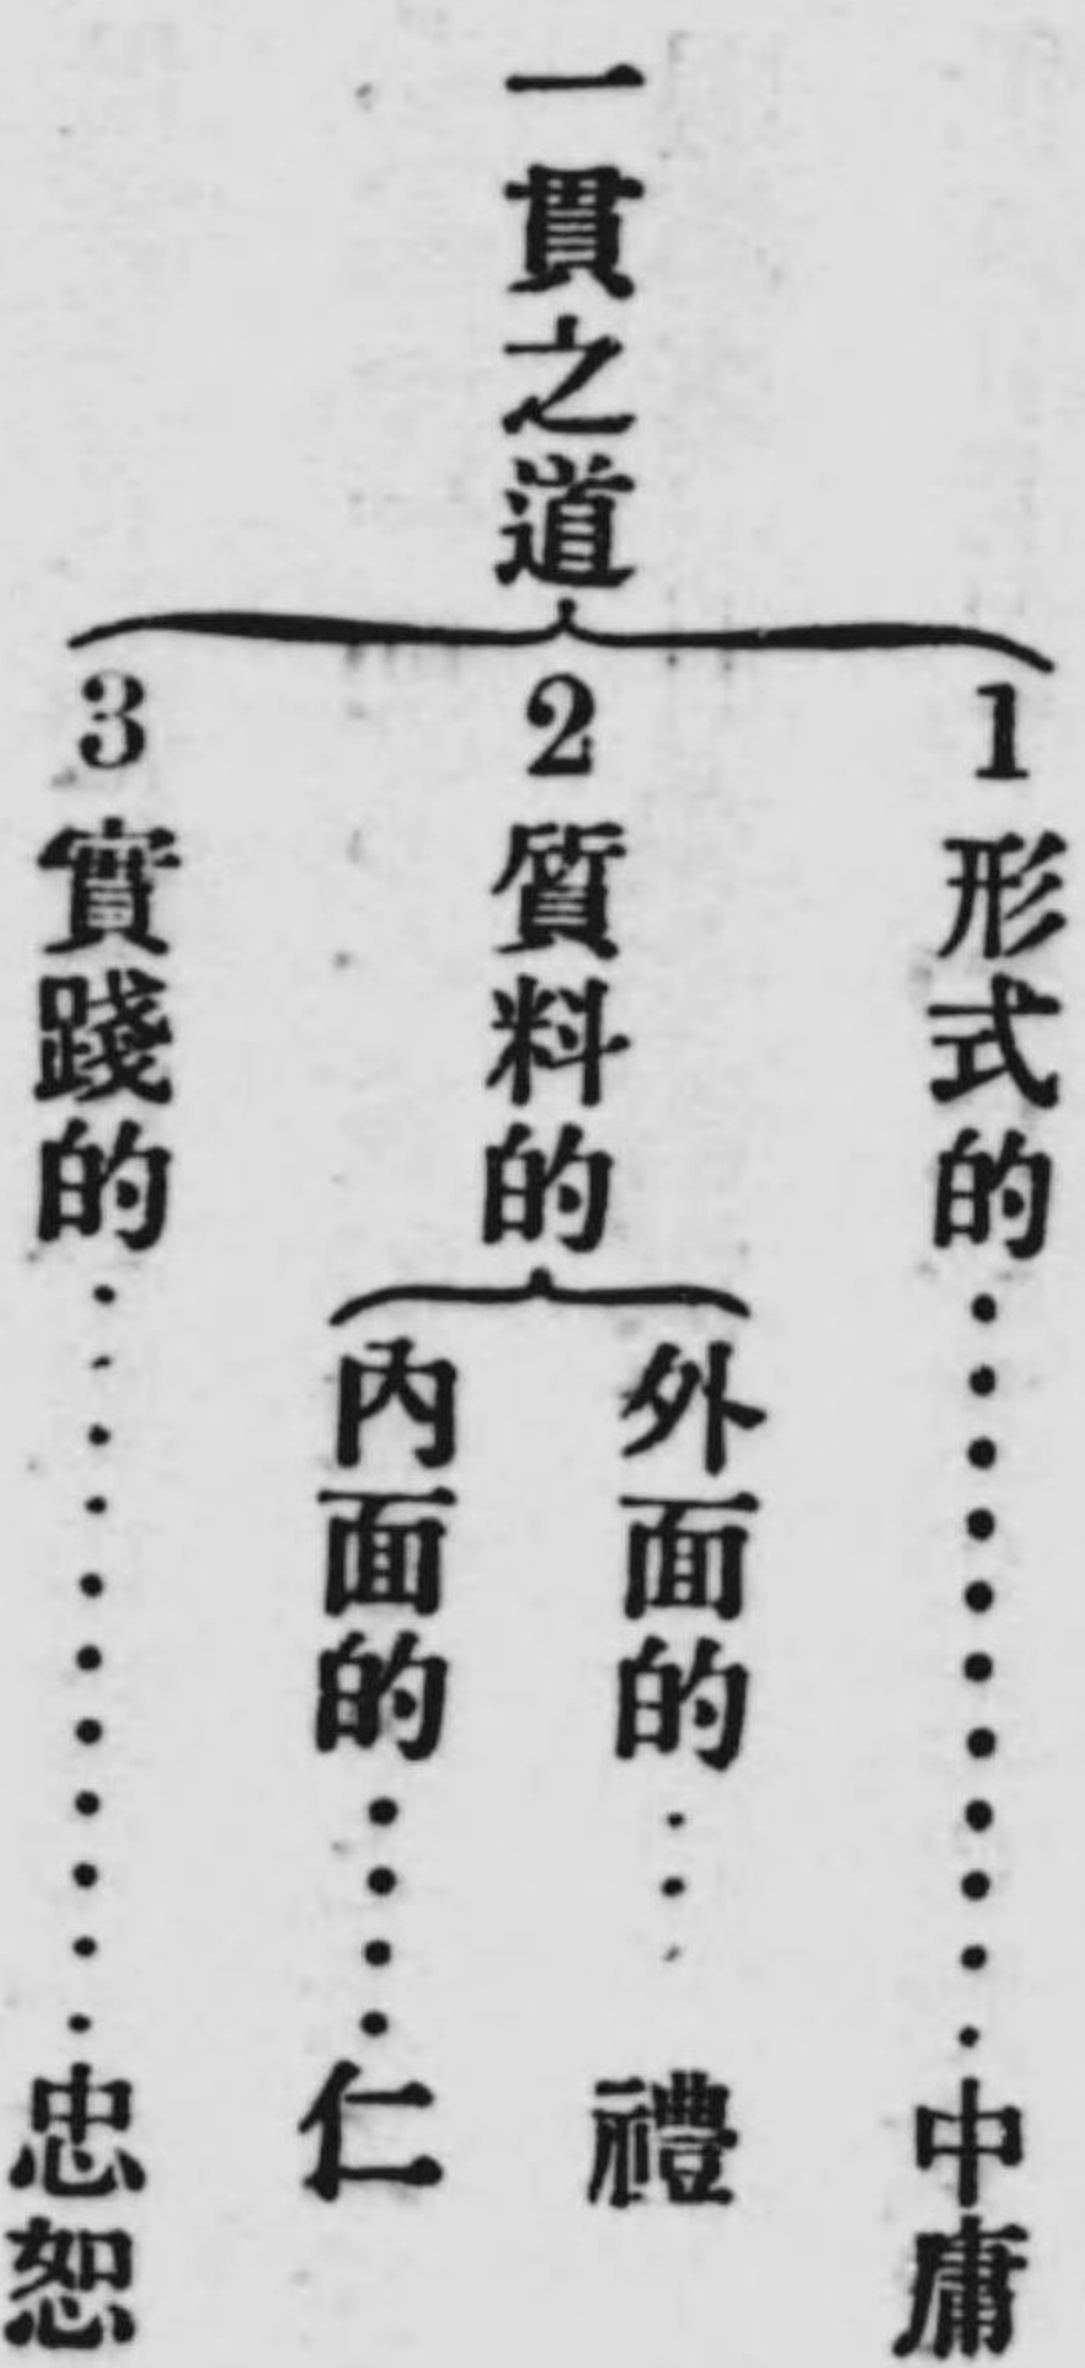 一貫之道
1 形式的…………中庸
2 質料的
外面的…禮
内面的…仁
3 實踐的…………忠恕